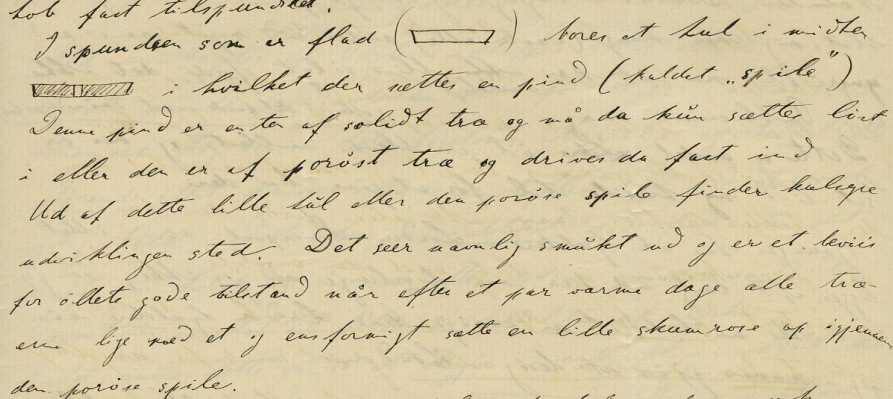 fast tilspundet.
I spundsen som er flad ( ) bores et hul i midten
i hvilket der sættes en pind (kaldet „spile")
Denne pind er enten af solidt træ og må da kün sættes löst
i eller den er af poröst træ og drives da fast ind
Ud af dette lille hül eller den poröse spile finder kulsyre
udviklingen sted. Det seer navnlig smükt ud og er et beviis
for öllets gode tilstand når efter et par varme dage alle træ-
erne lige med et og ensformigt sætte en lille skumrose op igjennem
den poröse spile.